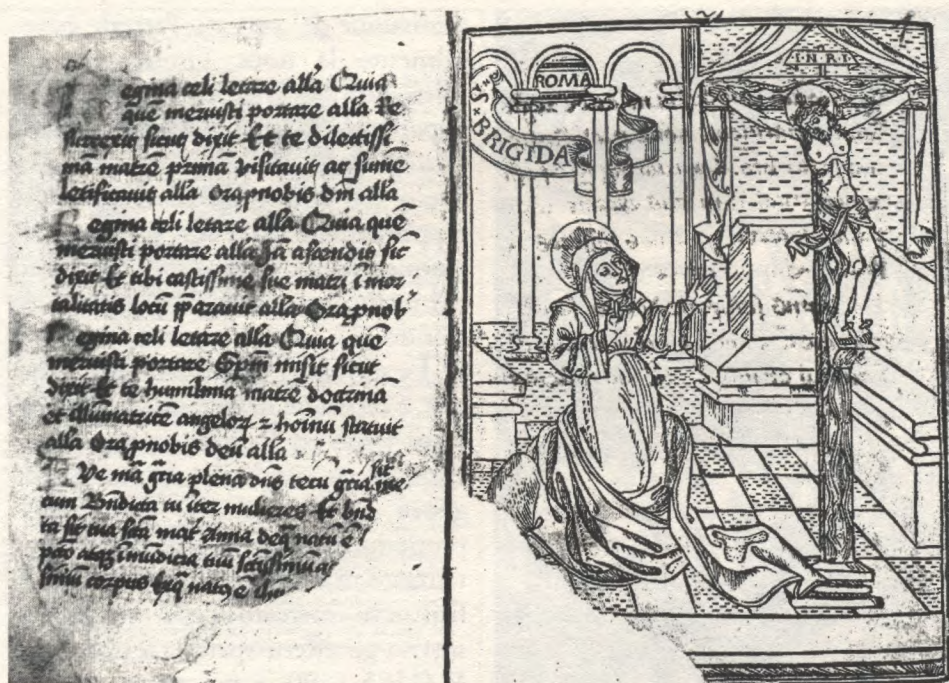 egina celi letare allā Quia
quē meruisti portare alla Re
surrexit sicut dixit Et te dilectissi
mā matrē primā visitauit ac sume
letificauit alla Ora pnobis dm̄ alla
egina celi letare alla Quia quē
meruisti portare alla Jā ascendit sic̄
dixit Et tibi castissime sue matri imor
talitatis locū pparauit alla Ora pnob
egina celi letare alla Quia quē
meruisti portare Spm̄ misit sicut
dixit Et te humilima matrē doctrinā
et illuminatricē angeloꝝ ꝛ hoīnū statuit
alla Ora pnobis deū alla
Ve mā grīa plena dn̄s tecū grīa sit me
cum Bn̄dicta tu īter mulieres Et bn̄d
ta sit tua scā mat̄ Anna deq̄ natū ē
sinū corpus exq̄ natꝰ ē
ROMA
S. BRIGIDA
INRI